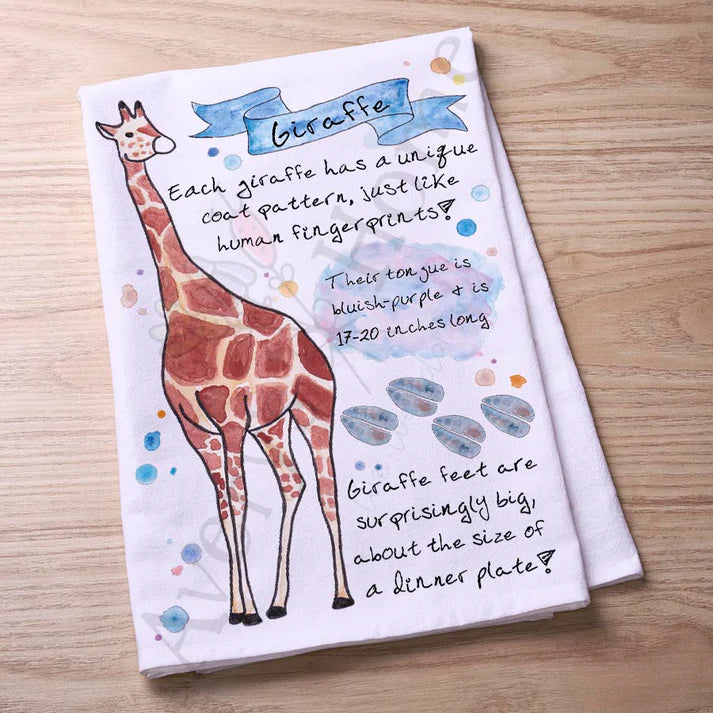 Giraffe
Each giraffe has a unique
coat pattern, just like
human fingerprints!
Their tongue is
bluish-purple & is
17-20 inches long
Giraffe feet are
surprisingly big,
about the size of
a dinner plate!